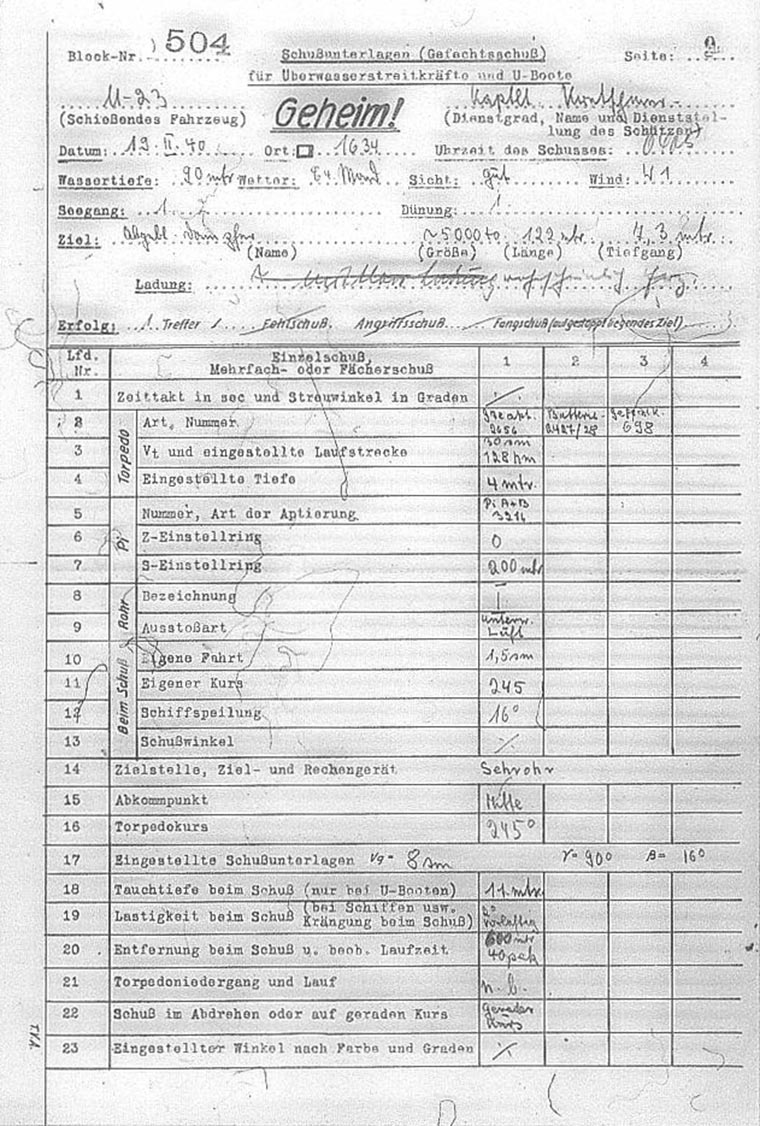 Block-Nr. 504 Schußunterlagen (Gefechtsschuß) Seite:
für Überwasserstreitkräfte und U-Boote
U-23 Geheim! Kaptlt.
(Schießendes Fahrzeug) (Dienstgrad, Name und Dienststel-
lung des Schützen)
Datum: 19.II.40 Ort: 1634 Uhrzeit des Schusses:
Wassertiefe: 90 mtr Wetter: Sicht: gut Wind:
Seegang: 1. Dünung: 1.
Ziel: Abgebl. Dampfer ~5000 to 122 mtr. 7,3 mtr.
(Name) (Größe) (Länge) (Tiefgang)
Ladung: wahrscheinlich
Erfolg: 1 Treffer / Fehlschuß. Angriffsschuß Fangschuß (aufgestoppt liegendes Ziel)
Lfd. Nr. Einzelschuß, Mehrfach- oder Fächerschuß 1 2 3 4
1 Zeittakt in sec und Streuwinkel in Graden
Torpedo
2 Art, Nummer 2656 Batterie 2427/28 698
3 Vt und eingestellte Laufstrecke 30 sm 128 hm
4 Eingestellte Tiefe 4 mtr.
Pi
5 Nummer, Art der Aptierung Pi A+B 3214
6 Z-Einstellring 0
7 S-Einstellring 200 mtr
Beim Schuß Rohr
8 Bezeichnung I
9 Ausstoßart unterw. Luft
10 Eigene Fahrt 1,5 sm
11 Eigener Kurs 245
12 Schiffspeilung 16°
13 Schußwinkel
14 Zielstelle, Ziel- und Rechengerät Sehrohr
15 Abkommpunkt Mitte
16 Torpedokurs 245°
17 Eingestellte Schußunterlagen Vg= 8 sm γ= 90° β= 16°
18 Tauchtiefe beim Schuß (nur bei U-Booten) 11 mtr.
19 Lastigkeit beim Schuß (bei Schiffen usw. Krängung beim Schuß) 2° vorlastig
20 Entfernung beim Schuß u. beob. Laufzeit 600 mtr 40 sek
21 Torpedoniedergang und Lauf n. b.
22 Schuß im Abdrehen oder auf geraden Kurs gerader Kurs
23 Eingestellter Winkel nach Farbe und Graden